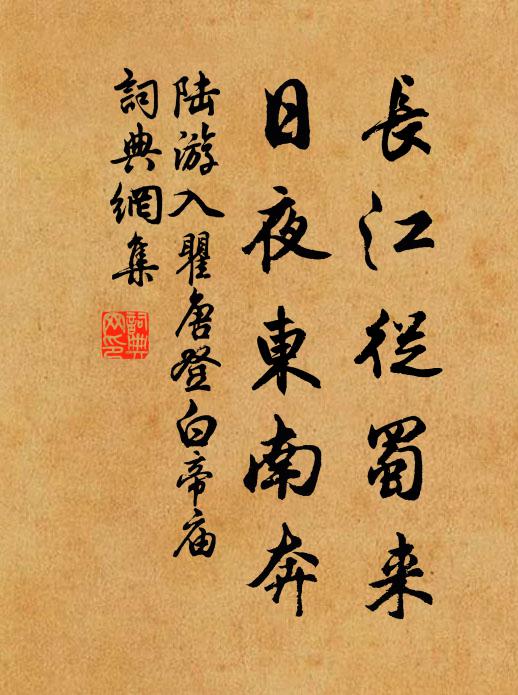 長江從蜀来
日夜東南奔
陆游入瞿唐登白帝庙
詞典網集
詞典
网印